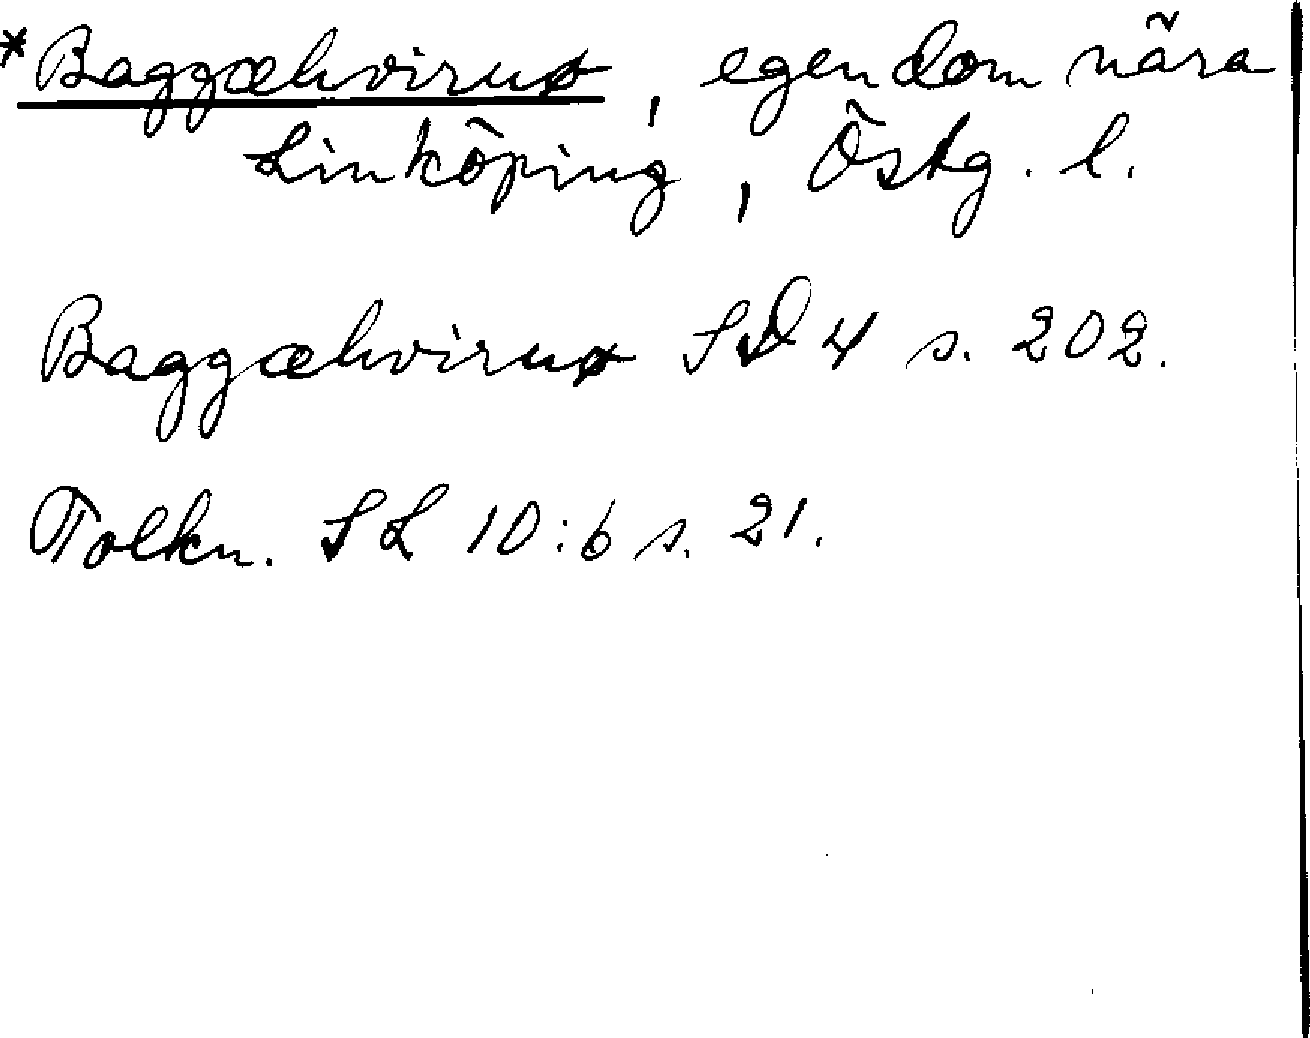 *Baggæhviruø, egendom nära
Linköping, Östg. l.
Baggæhviruø SD 4 s. 202.
Tolkn. SL 10:6 s. 21.